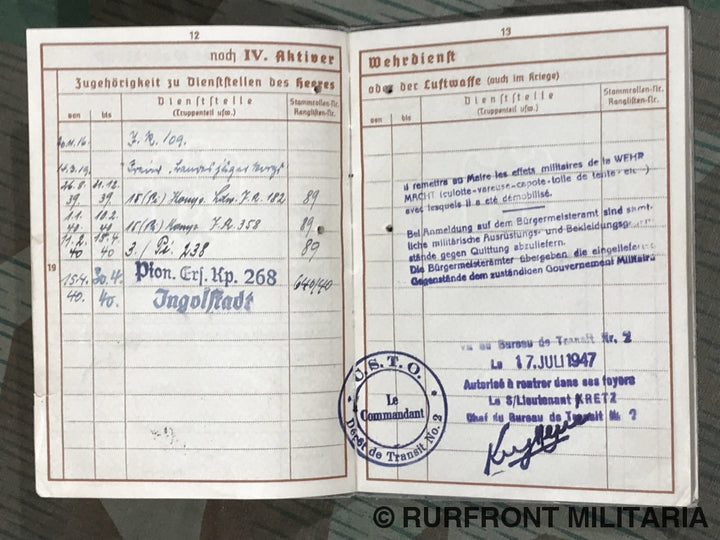 12
noch IV. Aktiver
Zugehörigkeit zu Dienststellen des Heeres
von bis Dienststelle (Truppenteil usw.) Stammrollen-Nr. Ranglisten-Nr.
J. R. 109.
26.8. 39 31.12. 39 J. R. 182 89
1.1. 40 10.2. 40 J. R. 358 89
11.2. 40 15.4. 40 3./ Pi 238 89
19
15.4. 40. 30.4. 40. Pion. Ers. Kp. 268 Ingolstadt 640/40
13
Wehrdienst
oder der Luftwaffe (auch im Kriege)
von bis Dienststelle (Truppenteil usw.) Stammrollen-Nr. Ranglisten-Nr.
Il remettra au Maire les effets militaires de la WEHR
MACHT (culotte-vareuse-capote-toile de tente-etc)
avec lesquels il a été démobilisé.
Bei Anmeldung auf dem Bürgermeisteramt sind sämt-
liche militärische Ausrüstungs- und Bekleidungsgegen-
stände gegen Quittung abzuliefern.
Die Bürgermeisterämter übergeben die eingelieferten
Gegenstände dem zuständigen Gouvernement Militaire
vu au Bureau de Transit Nr. 2
Le 17. JULI 1947
Autorisé à rentrer dans ses foyers
Le S/Lieutenant KRETZ
Chef du Bureau de Transit Nr. 2
C.S.T.O.
Le
Commandant
Dépôt de Transit No. 2
© RURFRONT MILITARIA